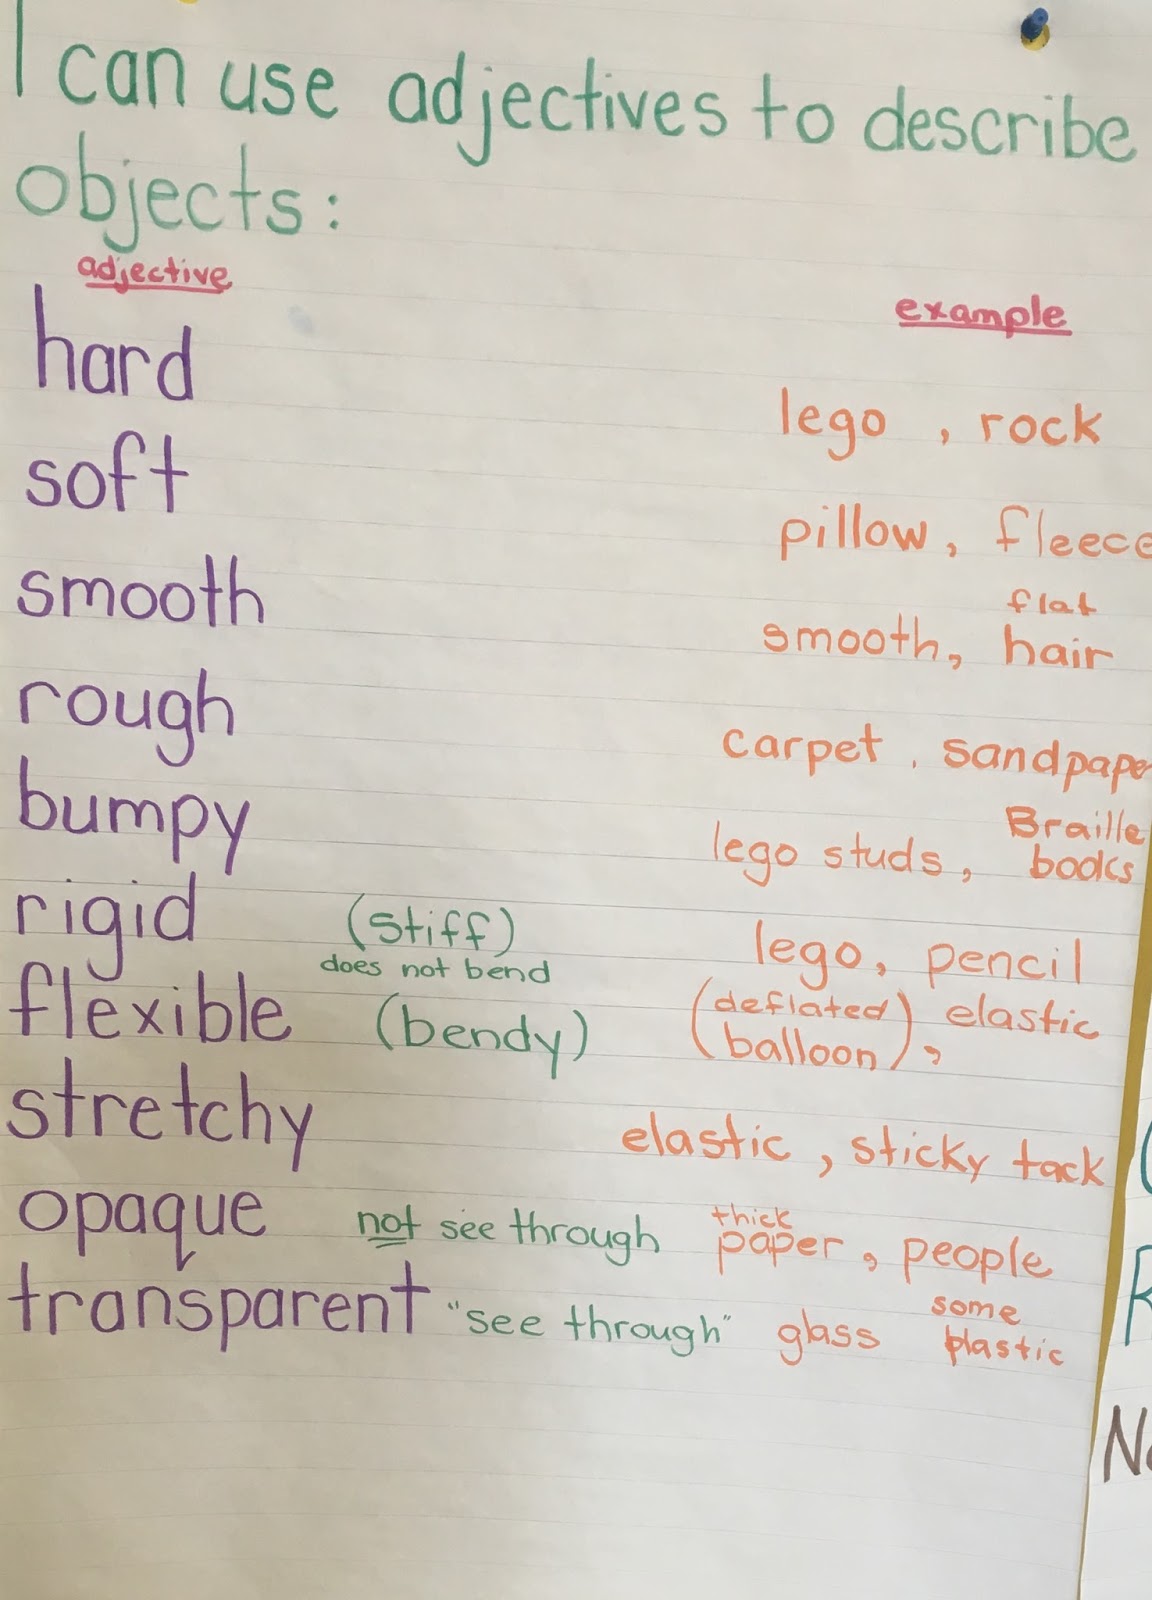 I can use adjectives to describe
objects:
adjective example
hard lego , rock
soft pillow, fleece
smooth smooth, flat hair
rough carpet , sandpaper
bumpy lego studs, Braille books
rigid (stiff) does not bend lego, pencil
flexible (bendy) (deflated balloon), elastic
stretchy elastic , sticky tack
opaque not see through thick paper, people
transparent "see through" glass some plastic